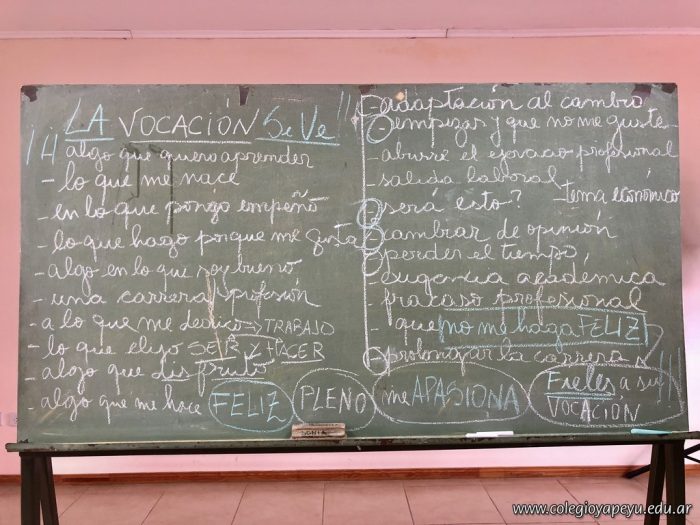 ¡¡¡ LA VOCACIÓN Se Ve!!!
algo que quiero aprender
- lo que me nace
- en lo que pongo empeño
- lo que hago porque me gusta
- algo en lo que soy bueno
- una carrera / profesión
- a lo que me dedico → TRABAJO
- lo que elijo SER Y HACER
- algo que disfruto
- algo que me hace FELIZ PLENO me APASIONA Fieles a su VOCACIÓN
- adaptación al cambio
- empezar y que no me guste
- aburre el ejercicio profesional
- salida laboral
- tema económico
- será esto?
- cambiar de opinión
- perder el tiempo
- exigencia académica
- fracaso profesional
- que no me haga FELIZ
- prolongar la carrera
SONIA
www.colegioyapeyu.edu.ar